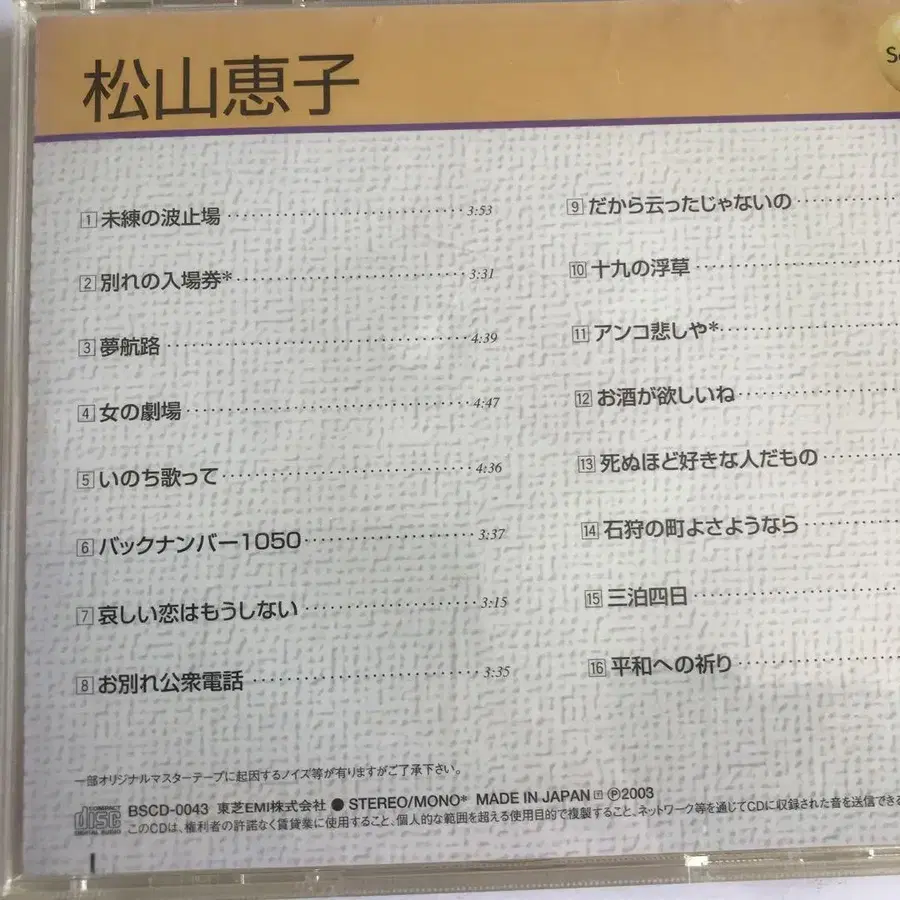 松山恵子
1 未練の波止場 3:53
2 別れの入場券* 3:31
3 夢航路 4:39
4 女の劇場 4:47
5 いのち歌って 4:36
6 バックナンバー1050 3:37
7 哀しい恋はもうしない 3:15
8 お別れ公衆電話 3:35
9 だから云ったじゃないの
10 十九の浮草
11 アンコ悲しや*
12 お酒が欲しいね
13 死ぬほど好きな人だもの
14 石狩の町よさようなら
15 三泊四日
16 平和への祈り
一部オリジナルマスターテープに起因するノイズ等が有りますがご了承下さい。
COMPACT disc DIGITAL AUDIO
BSCD-0043 東芝EMI株式会社 ● STEREO/MONO* MADE IN JAPAN ℗2003
このCDは、権利者の許諾なく賃貸業に使用すること、個人的な範囲を超える使用目的で複製すること、ネットワーク等を通じてCDに収録された音を送信できる